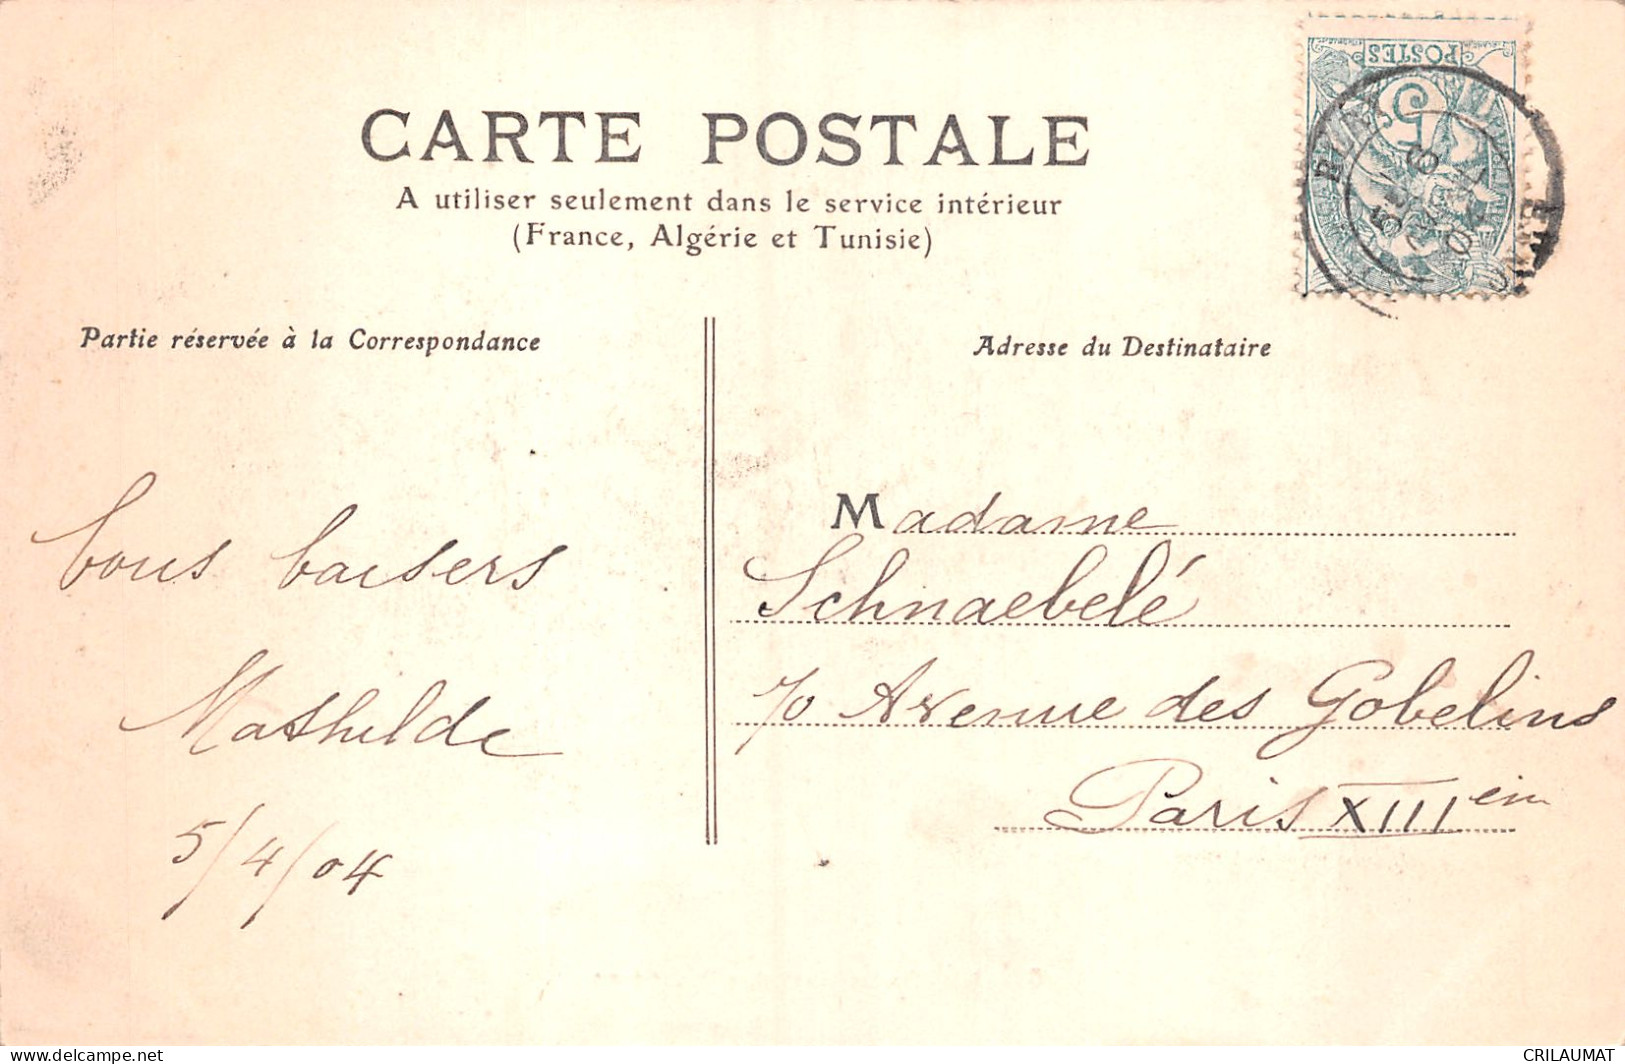 CARTE POSTALE
A utiliser seulement dans le service intérieur
(France, Algérie et Tunisie)
POSTES
5
Partie réservée à la Correspondance
Adresse du Destinataire
bons baisers
Mathilde
5/4/04
Madame
Schnaebelé
70 Avenue des Gobelins
Paris XIIIem
delcampe.net
CRILAUMAT